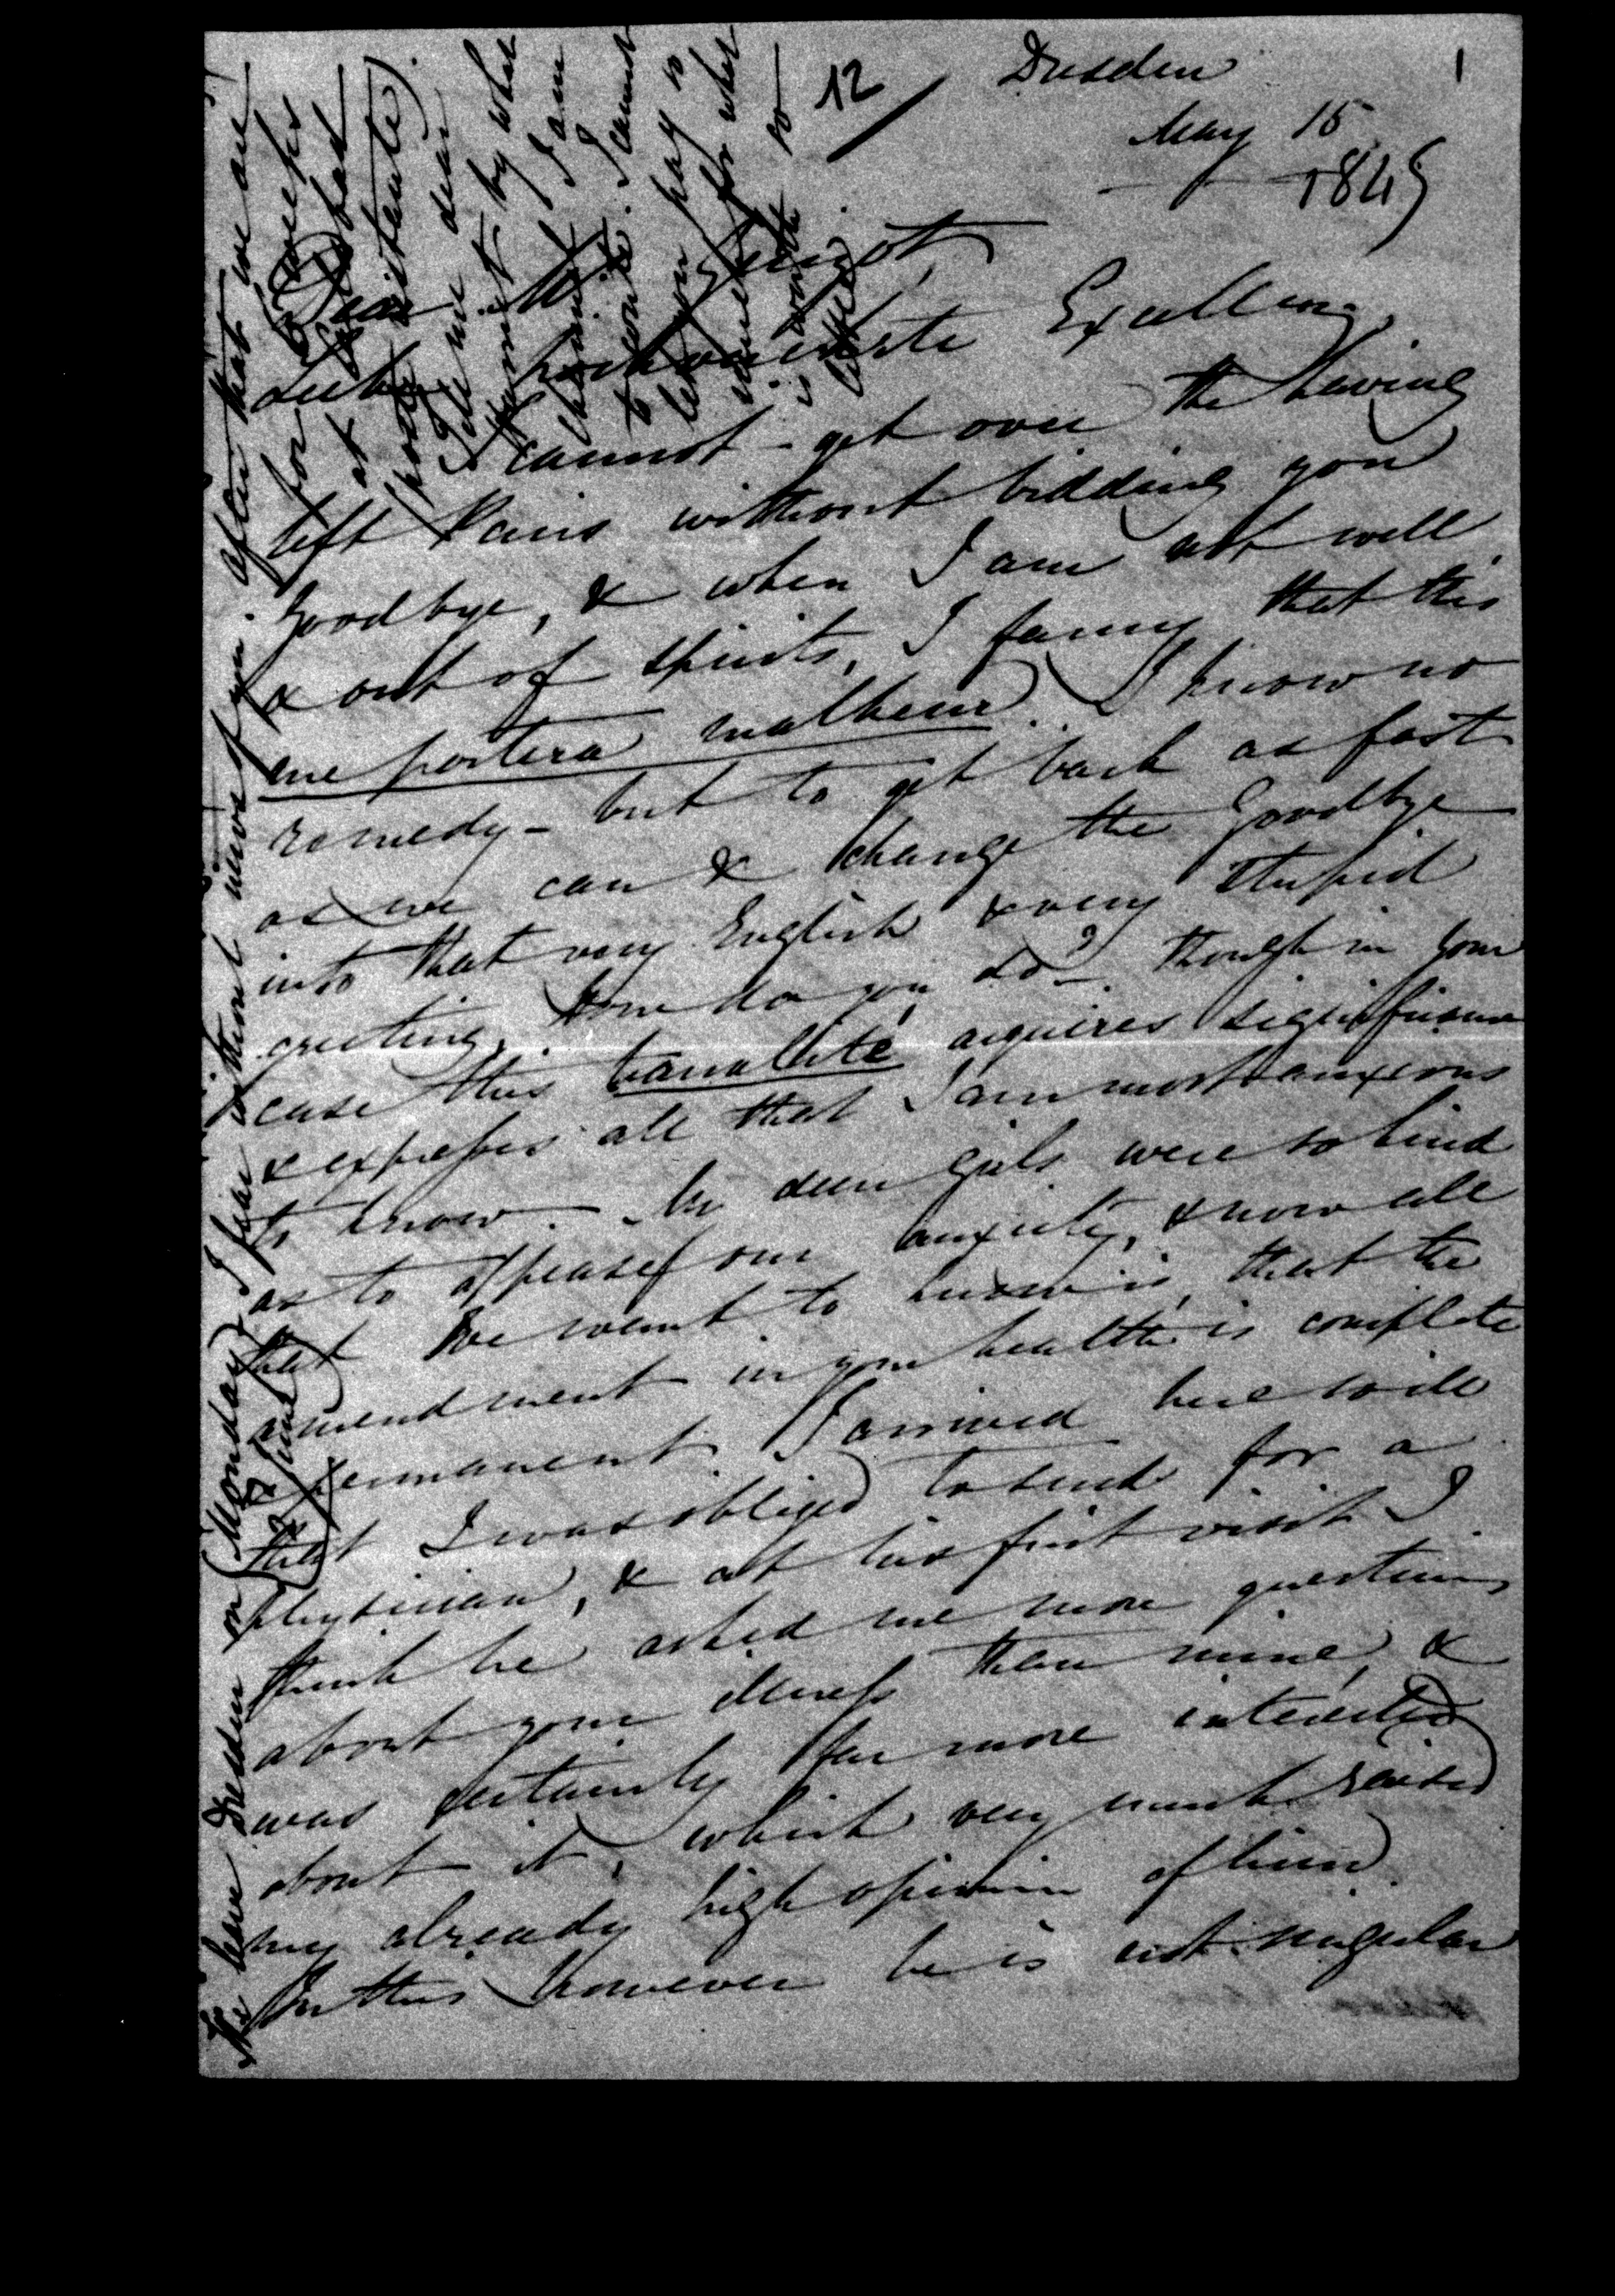 12
Dresden
1
May 15
1845
Dear Mr Guizot,
Liebe hochverehrte Excellenz,
I cannot get over the having
left Paris without bidding you
goodbye, & when I am not well
& out of spirits, I fancy that this
me portera malheur. I know no
remedy - but to get back as fast
as we can & change the Goodbye
into that very English & very stupid
greeting, how do you do? though in your
case this banalité acquires significance
& expresses all that I am most anxious
to know. - Yr dear girls were so kind
as to appease our anxiety, & now all
that we want to know is, that the
amendment in your health is complete
& permanent. I arrived here so ill
that I was obliged to send for a
physician, & at his first visit I
think he asked me more questions
about your illness than mine, &
was certainly far more interested
about it, which very much raised
my already high opinion of him.
In this however he is not singular
We leave Dresden on (Monday
2d June) I fear without news of you. After that we are
for 3 weeks
at
poste restante).
Tell me dear
by what
I am
to
. I cannot
let you pay so
for what
is worth so
little.